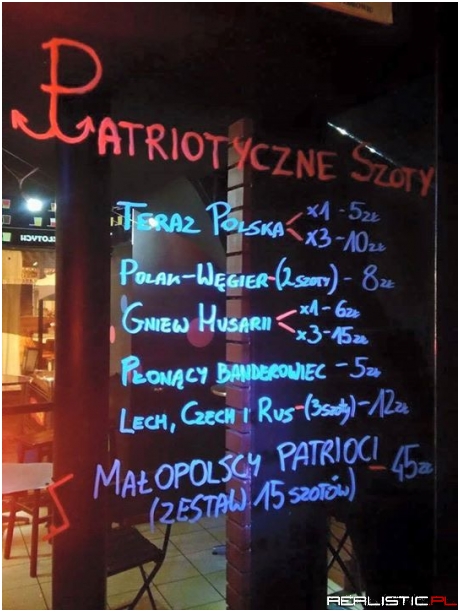 PATRIOTYCZNE SZOTY
TERAZ POLSKA x1 - 5zł
x3 - 10zł
POLAK-WĘGIER-(2szoty) - 8zł
GNIEW HUSARII x1 - 6zł
x3 - 15zł
PŁONĄCY BANDEROWIEC - 5zł
LECH, CZECH I RUS -(3szoty) - 12zł
MAŁOPOLSCY PATRIOCI - 45zł
(ZESTAW 15 SZOTÓW)
REALISTIC.PL